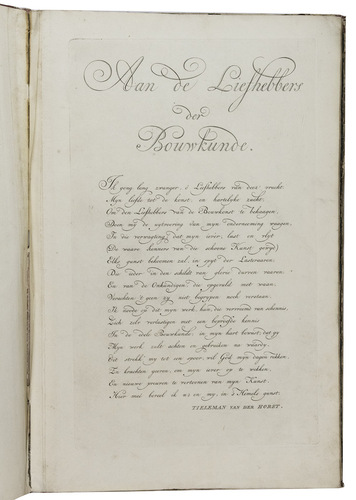 Aan de Liefhebbers
der
Bouwkunde.
Ik gong lang zwanger, ô Liefhebbers van deze vrucht.
Myn liefde tot de konst, en hartelyke zucht
Om den Liefhebbers van de Bouwkonst te behaagen,
Deen my de uytvoering van myn onderneeming waagen,
In die verwagting dat myn yver, last en vlyt
De waare kenners van die schoone Kunst gewyd
Elks gunst bekomen zal, in spyt der Lasteraaren.
Die ieder in den schildt van glorie durven vaaren.
En van de Onkundigen, die opgevuld met waan,
Verachten 't geen zy niet begrypen noch verstaan.
Ik noode op dat myn werk, hen, die vervremd van schennis,
Zich zelv verlustigen met een beproefde kennis
In de edele Bouwkunde: in myn hart bewust dat gy
Myn werk zult achten en gebruiken na waardy.
Dit strekk' my tot een spoor, wil God myn dagen rekken,
En krachten geeven, om myn yver op te wekken,
En nieuwe proeven te vertoonen van myn Kunst.
Hier mee beveel ik u en my, in 's Hemels gunst.
TIELEMAN VAN DER HORST.